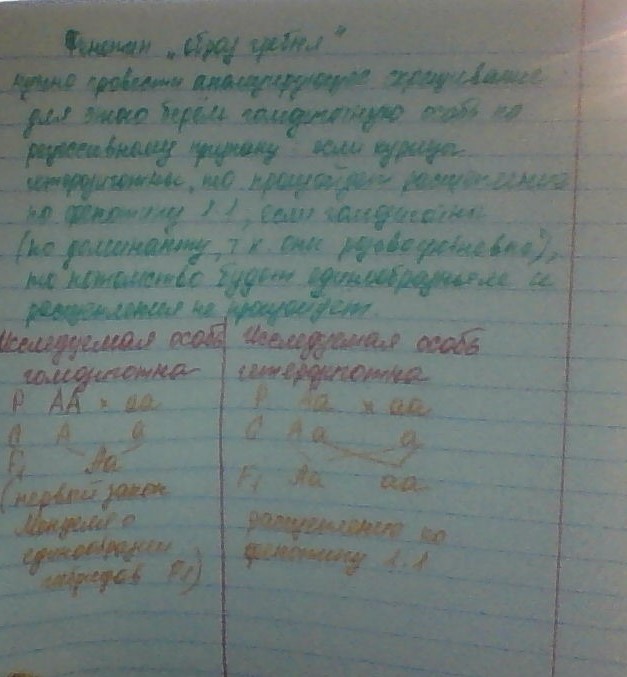 Фенотип „образ гребня"
нужно провести анализирующее скрещивание
для этого берём гомозиготную особь по
рецессивному признаку если курица
гетерозиготны, то произойдет расщепление
по фенотипу 1:1, если гомозиготна
(по доминанту, т.к. они),
то потомство будет единообразным и
расщепления не произойдет.
Исследуемая особь гомозиготна
P AA × aa
G A a
F₁ Aa
(первый закон
Менделя о
единообразии
гибридов F₁)
Исследуемая особь
гетерозиготна
P Aa × aa
G A a a
F₁ Aa aa
расщепление по
фенотипу 1:1